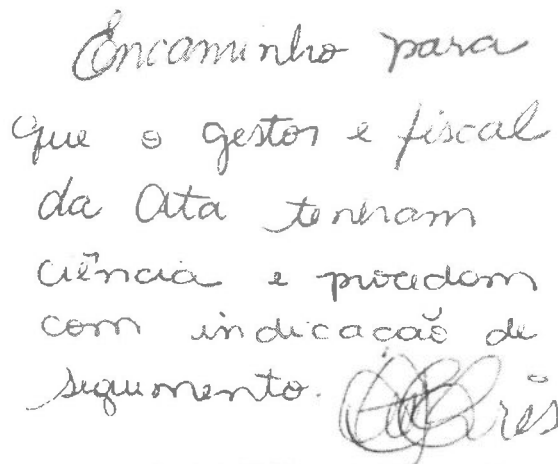 Encaminho para
que o gestor e fiscal
da Ata tenham
ciência e procedam
com indicacaõ de
seguimento.